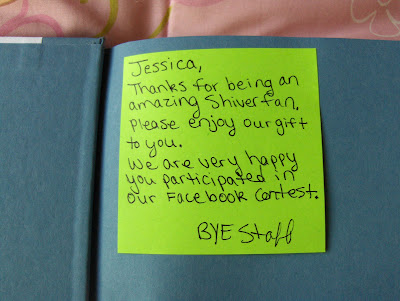 Jessica,
Thanks for being an
amazing Shiver fan.
Please enjoy our gift
to you.
We are very happy
you participated in
our Facebook Contest.
BYE Staff